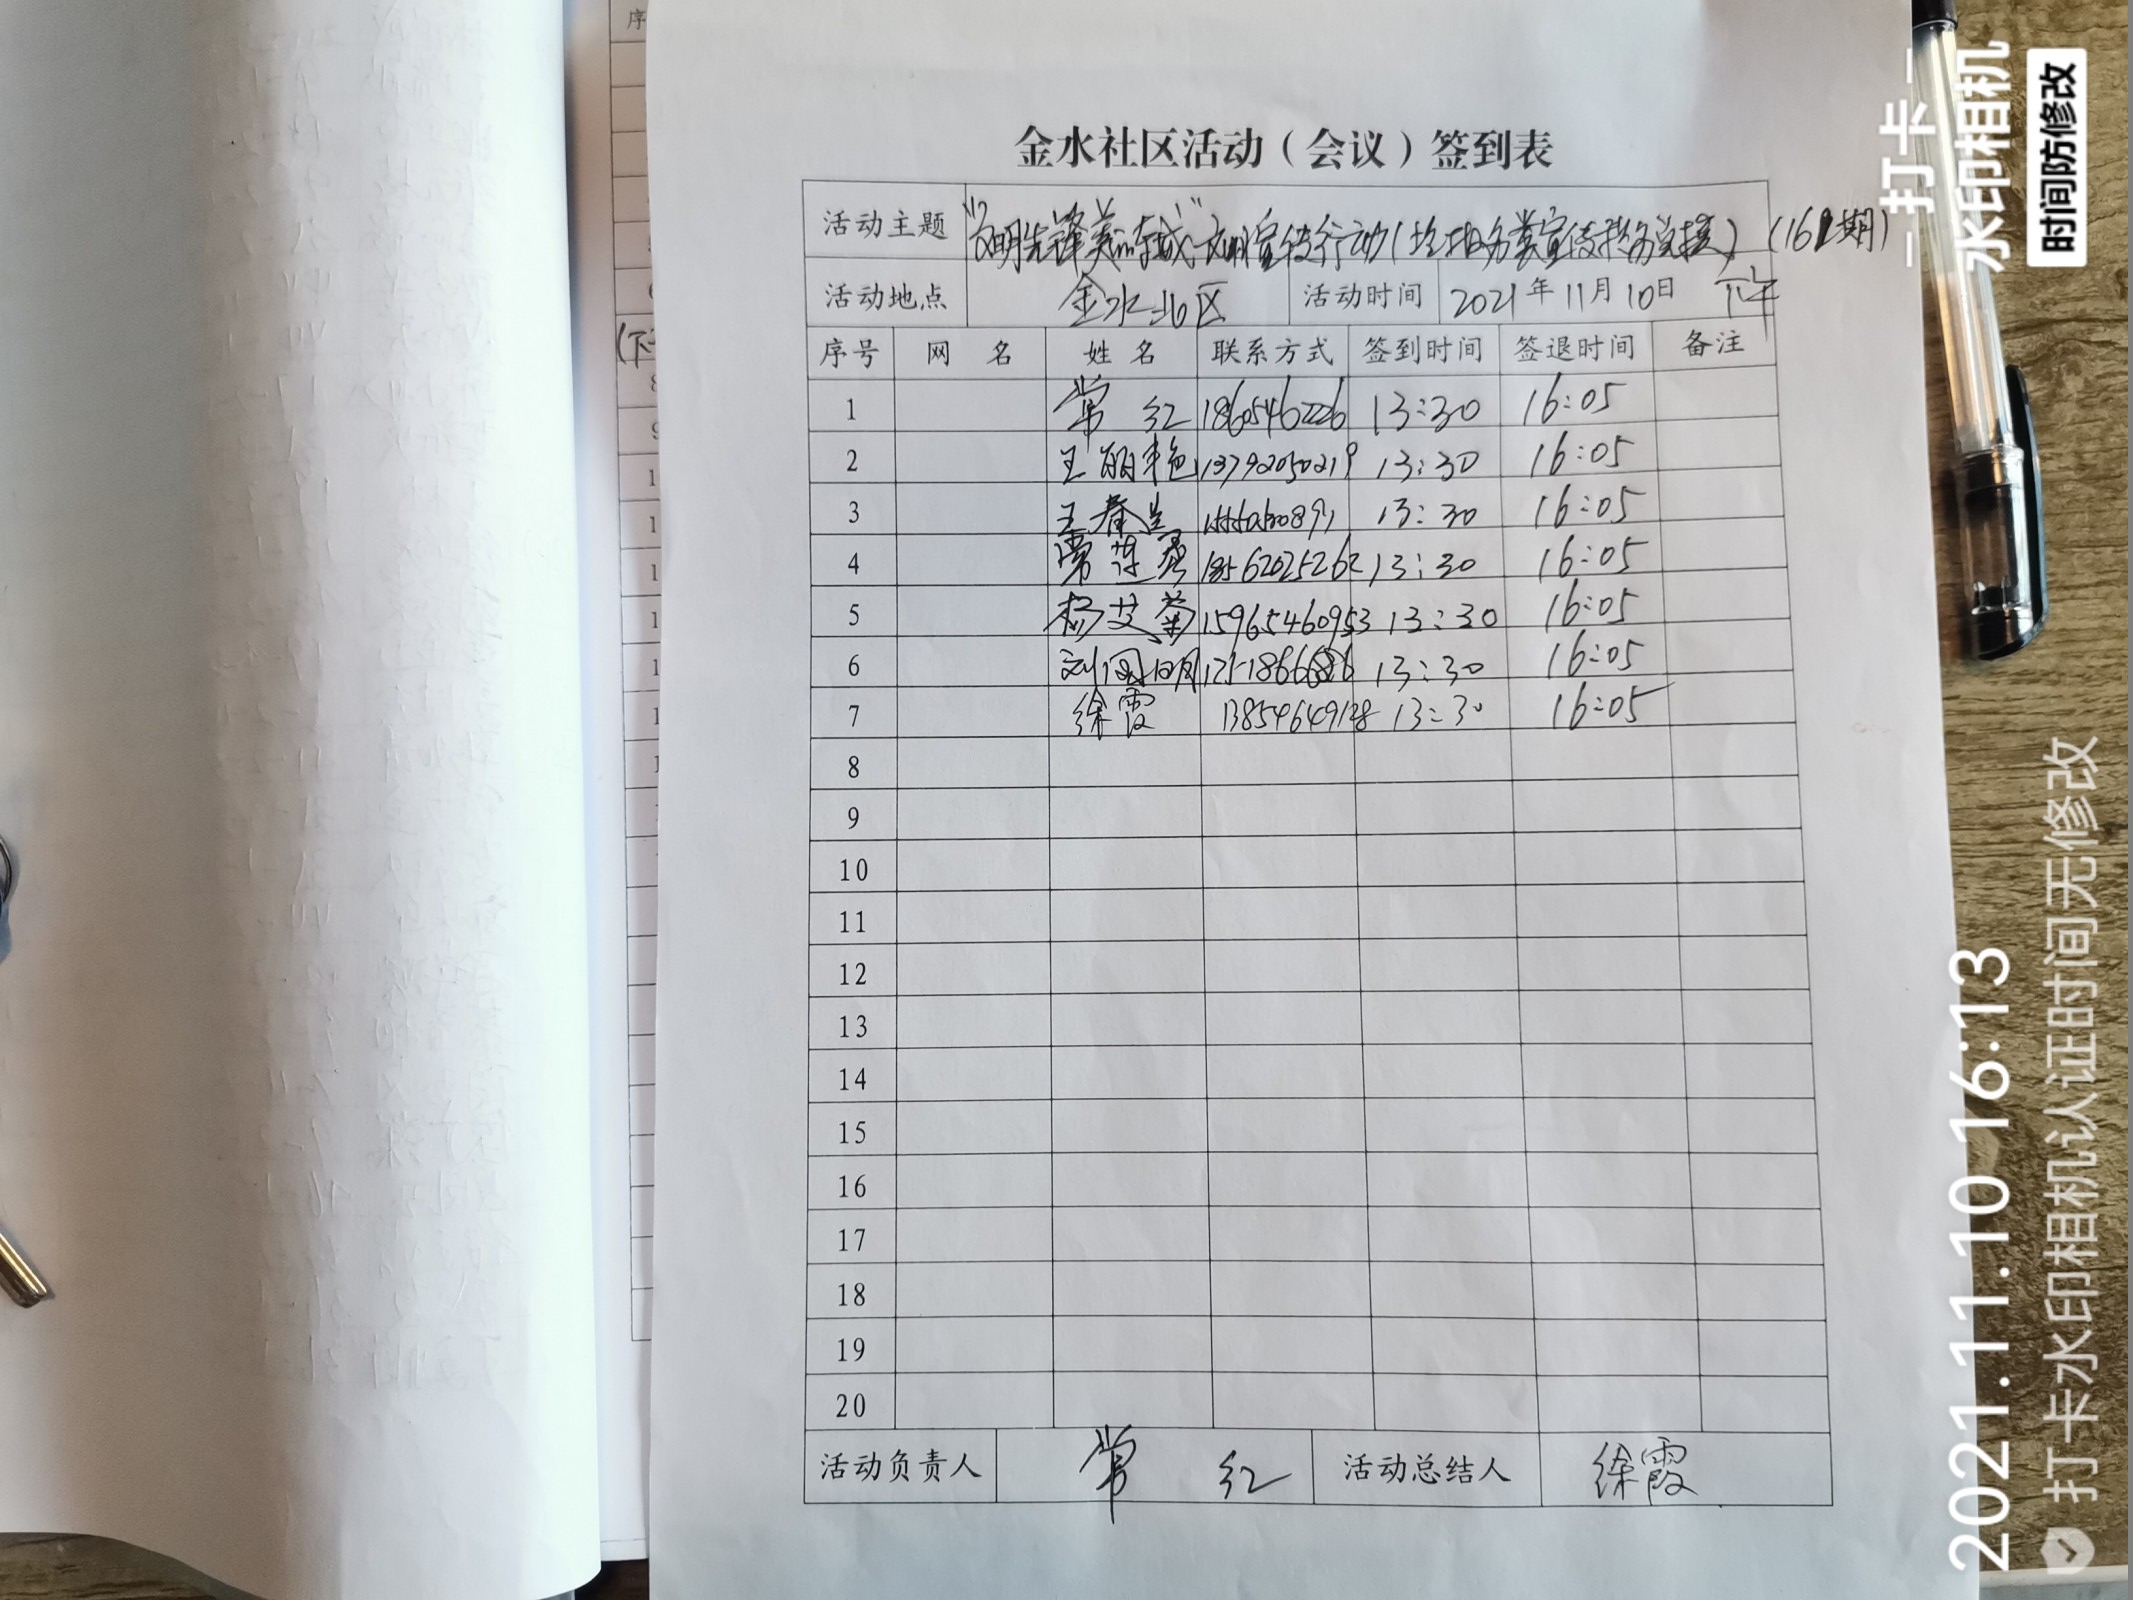 金水社区活动（会议）签到表
活动主题 "文明先锋 美 东城" 文明宣传行动（垃圾分类宣传 ）（161期）
活动地点 金水北区 活动时间 2021年11月10日 下午
序号 网 名 姓 名 联系方式 签到时间 签退时间 备注
1 常 红 1860546226 13:30 16:05
2 王丽艳 13792050219 13:30 16:05
3 王春 13:30 16:05
4 常莲 18562025262 13:30 16:05
5 杨艾菊 15965460953 13:30 16:05
6 刘国明 13:30 16:05
7 徐霞 13854649128 13:30 16:05
8
9
10
11
12
13
14
15
16
17
18
19
20
活动负责人 常 红 活动总结人 徐霞
序
(下
打卡
水印相机
时间防修改
2021.11.10 16:13
打卡水印相机认证时间无修改